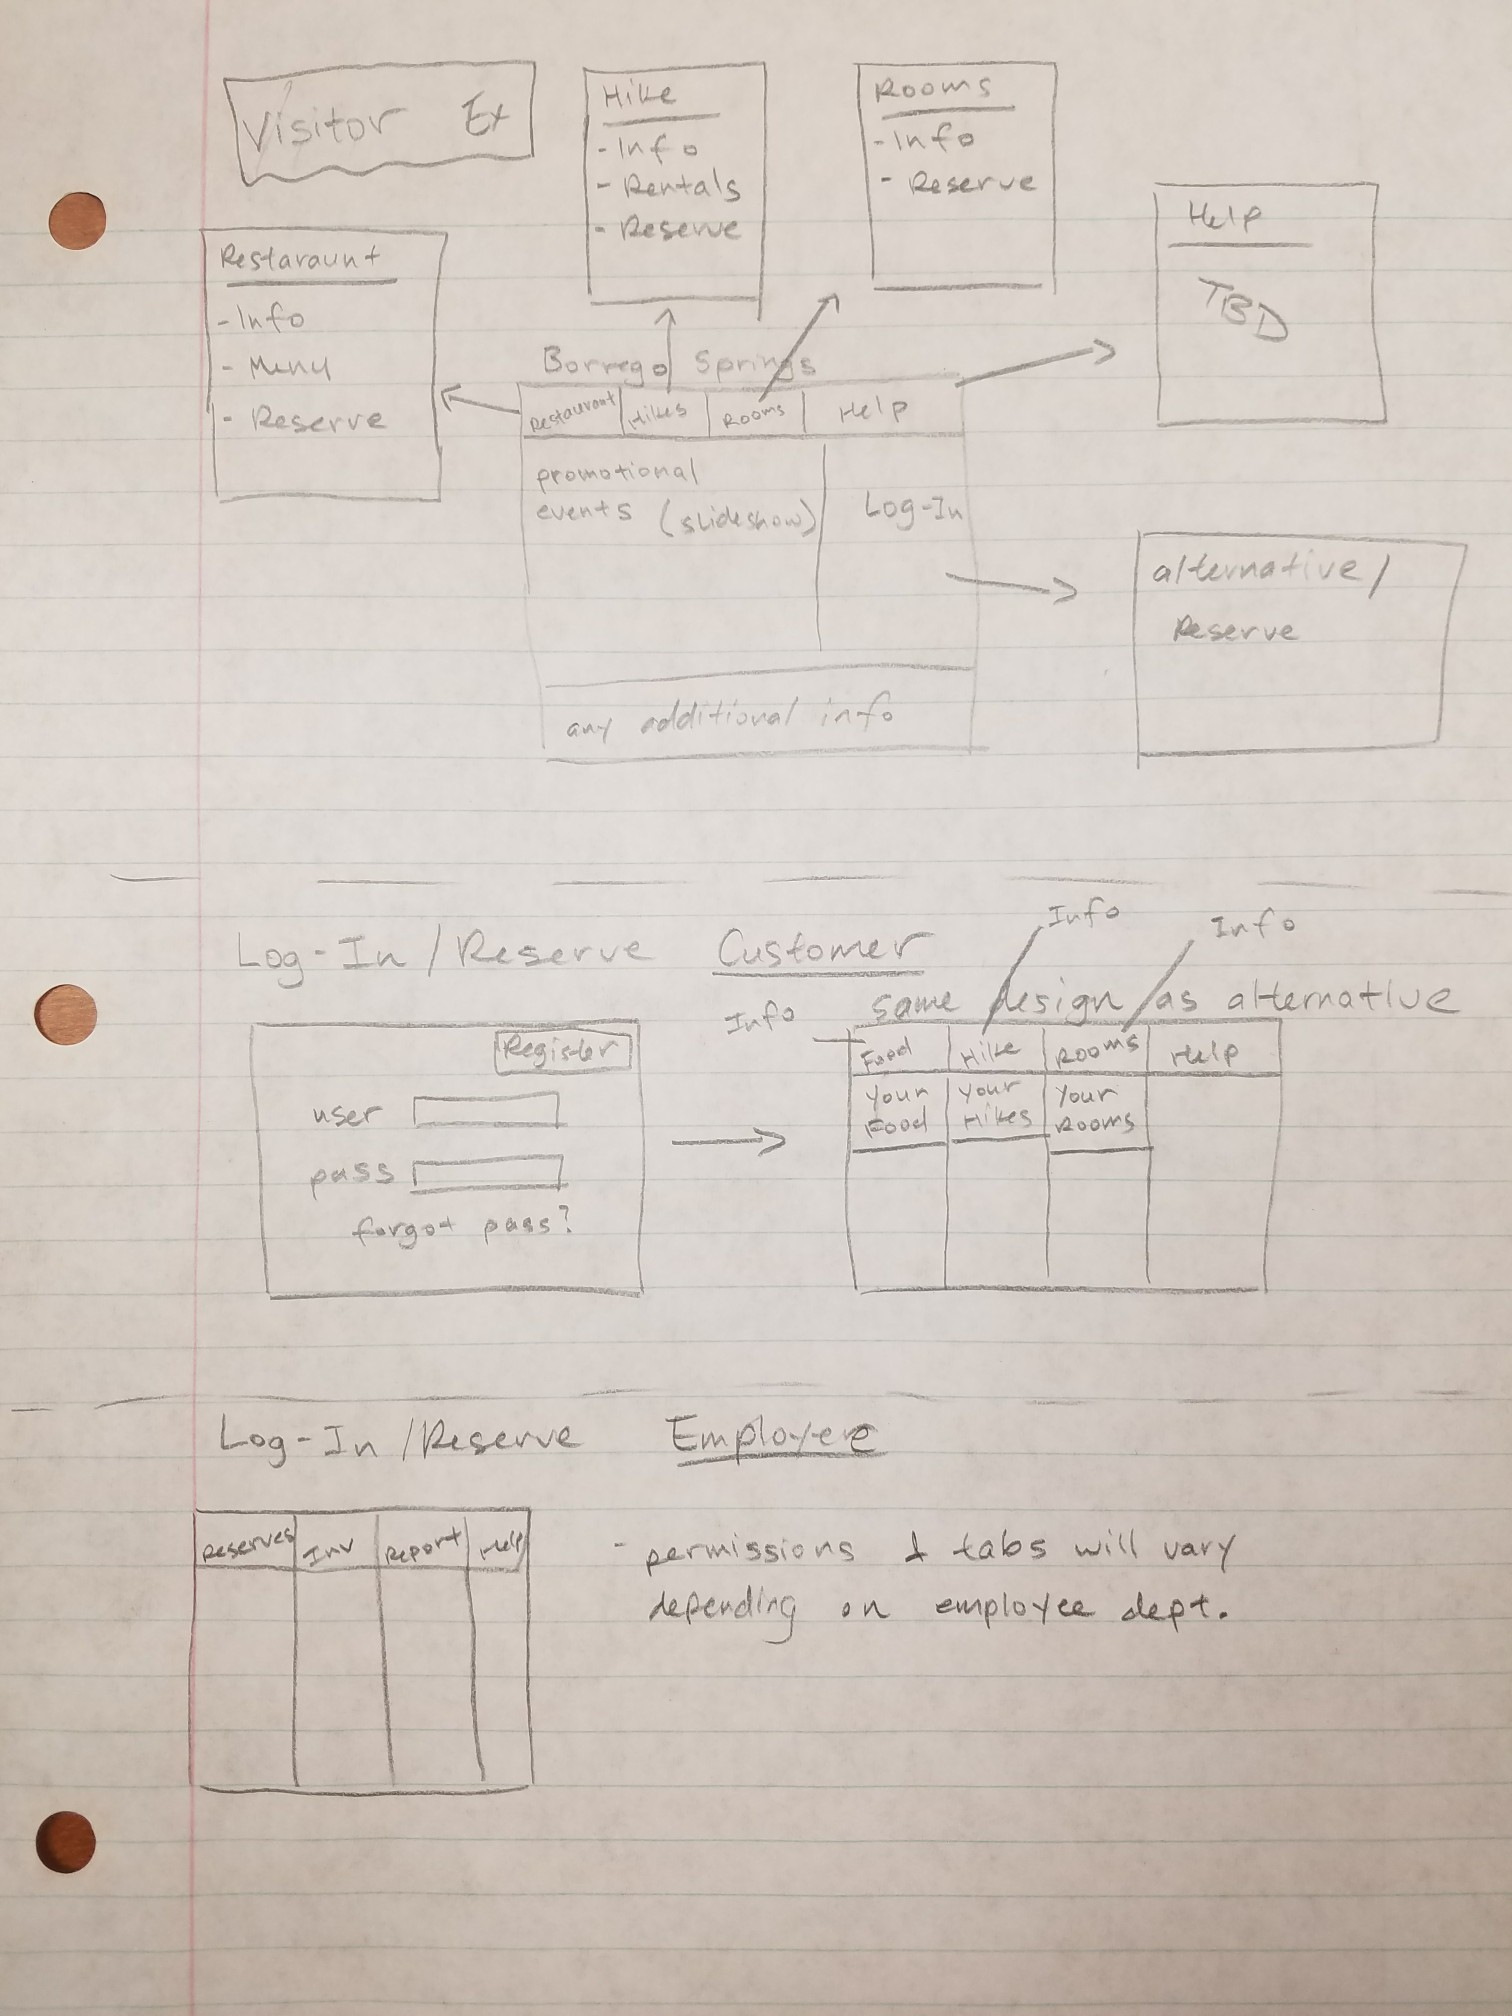 Visitor Ex
Hike
- Info
- Rentals
- Reserve
Rooms
- Info
- Reserve
Help
TBD
Restaraunt
- Info
- Menu
- Reserve
Borrego Springs
Restaurant Hikes Rooms Help
promotional
events (slideshow)
Log-In
any additional info
alternative/
Reserve
Log-In/Reserve Customer
Info
Info
Info
same design as alternative
Register
user
pass
forgot pass?
Food Hike Rooms Help
Your
Food
Your
Hikes
Your
Rooms
Log-In/Reserve Employee
Reserves Inv Report Help
- permissions & tabs will vary
depending on employee dept.